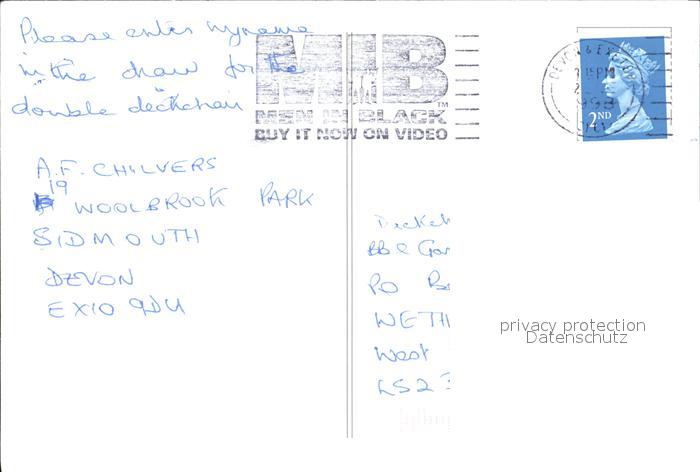 Please enter my name
in the draw for the
double deckchair
MIB™
MEN IN BLACK
BUY IT NOW ON VIDEO
DEVON & EX
PM
2ND
A.F. CHILVERS
19
WOOLBROOK PARK
SIDMOUTH
DEVON
EX10 9DU
Deckch
BBC Gar
PO B
WETH
West
LS23
privacy protection
Datenschutz